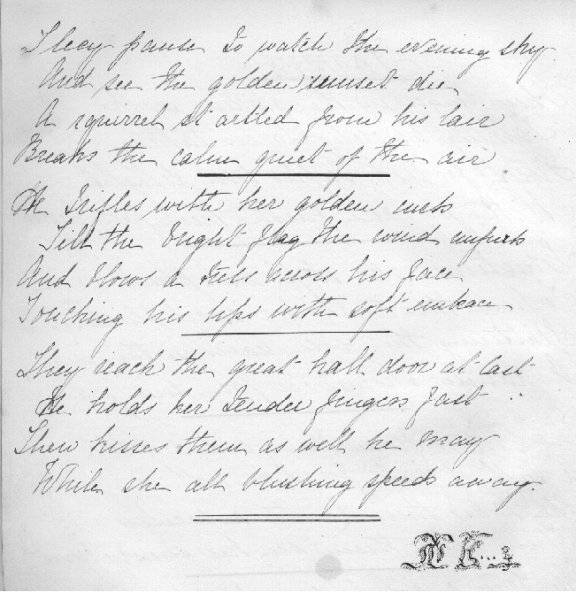 They pause to watch the evening sky
And see the golden sunset die
A squirrel startled from his lair
Breaks the calm quiet of the air
He trifles with her golden curls
Till the bright flag the wind unfurls
And blows a tress across his face
Touching his lips with soft embrace
They reach the great hall door at last
He holds her tender fingers fast
Then kisses them as well he may
While she all blushing speeds away.